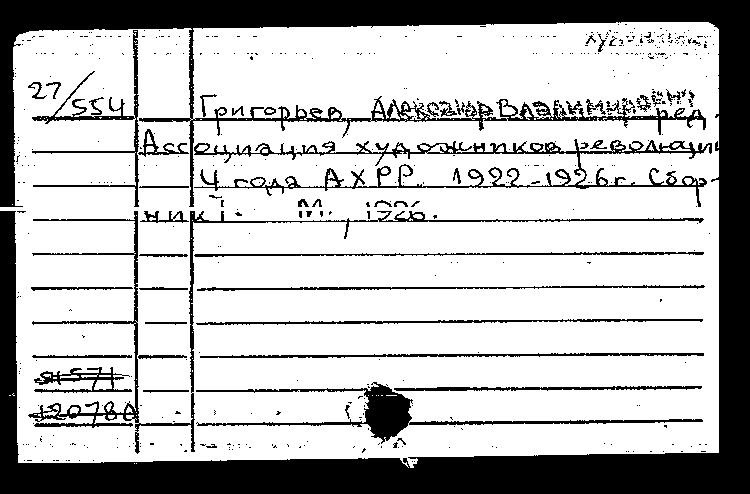 27/554
Григорьев, Александр Владимирович ред.
Ассоциация художников революции
4 года АХРР. 1922-1926г. Сбор-
ник 1. М., 1926.
51571